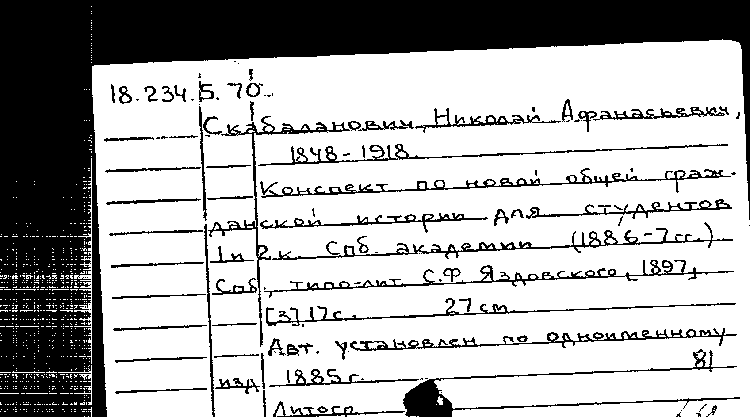 18.234.5.70.
Скабаланович, Николай Афанасьевич,
1848-1918.
Конспект по новой общей граж-
данской истории для студентов
1 и 2 к. Спб. академии (1886-7 гг.)
Спб., типо-лит. С.Ф. Яздовского, [1897].
[3], 17 с. 27 см.
Авт. установлен по одноименному
изд. 1885 г. 81
Литогр.